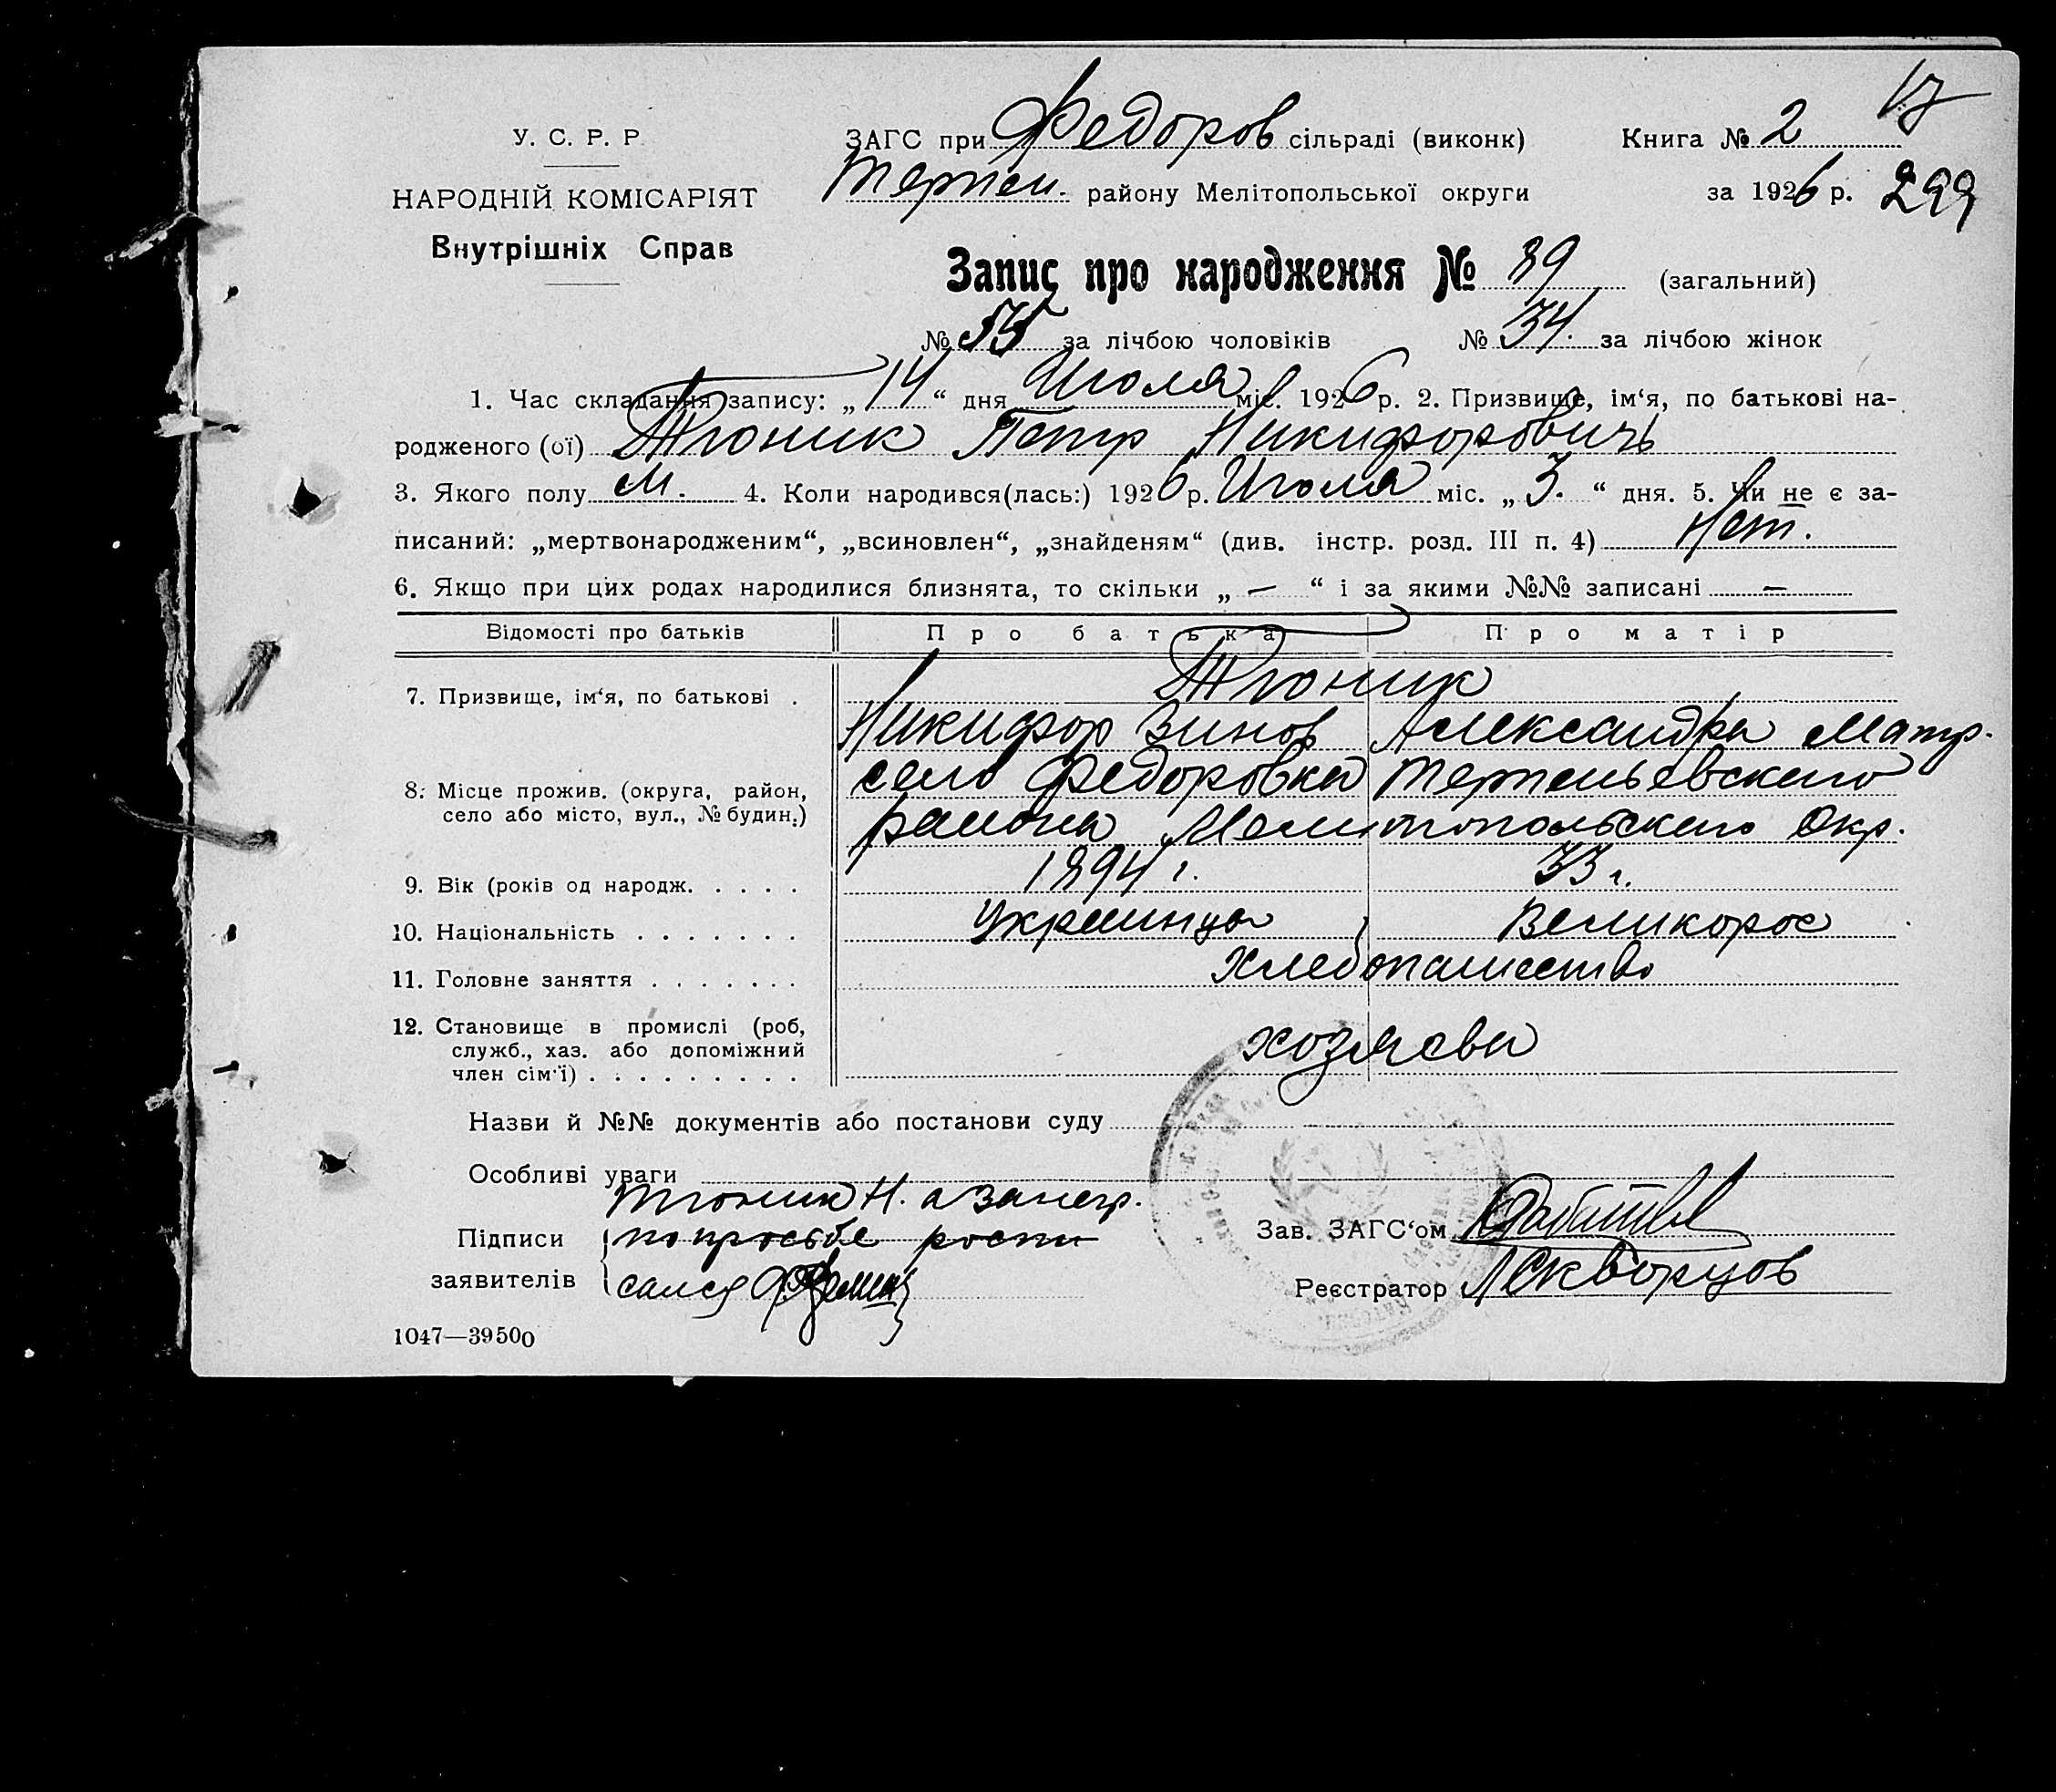 17
У. С. Р. Р.
ЗАГС при Федоров сільраді (виконк)
Книга № 2
НАРОДНІЙ КОМІСАРІЯТ
Терпен. району Мелітопольської округи
за 1926 р. 299
Внутрішніх Справ
Запис про народження № 89 (загальний)
№ 55 за лічбою чоловіків № 34. за лічбою жінок
1. Час складання запису: „14“ дня Июля міс. 1926 р. 2. Призвище, ім‘я, по батькові на-
родженого (ої) Тюник Петр Никифоровичь
3. Якого полу м. 4. Коли народився(лась:) 1926 р. Июля міс. „3.“ дня. 5. Чи не є за-
писаний: „мертвонародженим“, „всиновлен“, „знайденям“ (див. інстр. розд. III п. 4) Нет.
6. Якщо при цих родах народилися близнята, то скільки „ — “ і за якими №№ записані —
Відомості про батьків Про батька Про матір
7. Призвище, ім‘я, по батькові . Тюник
Никифор Зинов Александра Матр.
8. Місце прожив. (округа, район, село Федоровка Терпеньевского
село або місто, вул., № будин.) района Мелитопольского Окр.
9. Вік (років од народж. . . . . 1894 г. 33 г.
10. Національність . . . . . . . Украинцы Великорос
11. Головне заняття . . . . . . . Хлебопашество
12. Становище в промислі (роб,
служб., хаз. або допоміжний хозяева
член сім‘ї) . . . . . . . . .
Назви й №№ документів або постанови суду
Особливі уваги
Тюник Н. а за негр.
Підписи по просьбе роспи
заявителів сался
Зав. ЗАГС‘ом
Реєстратор Скворцов
1047—39500